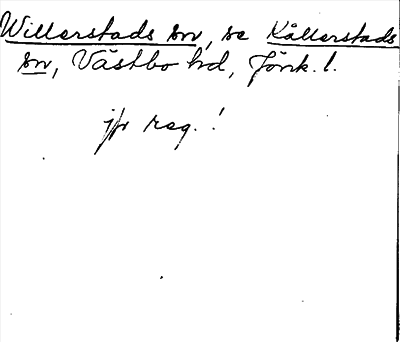 Willerstads sn, se Kållerstads
sn, Västbo hd, Jönk. l.
jfr reg.!